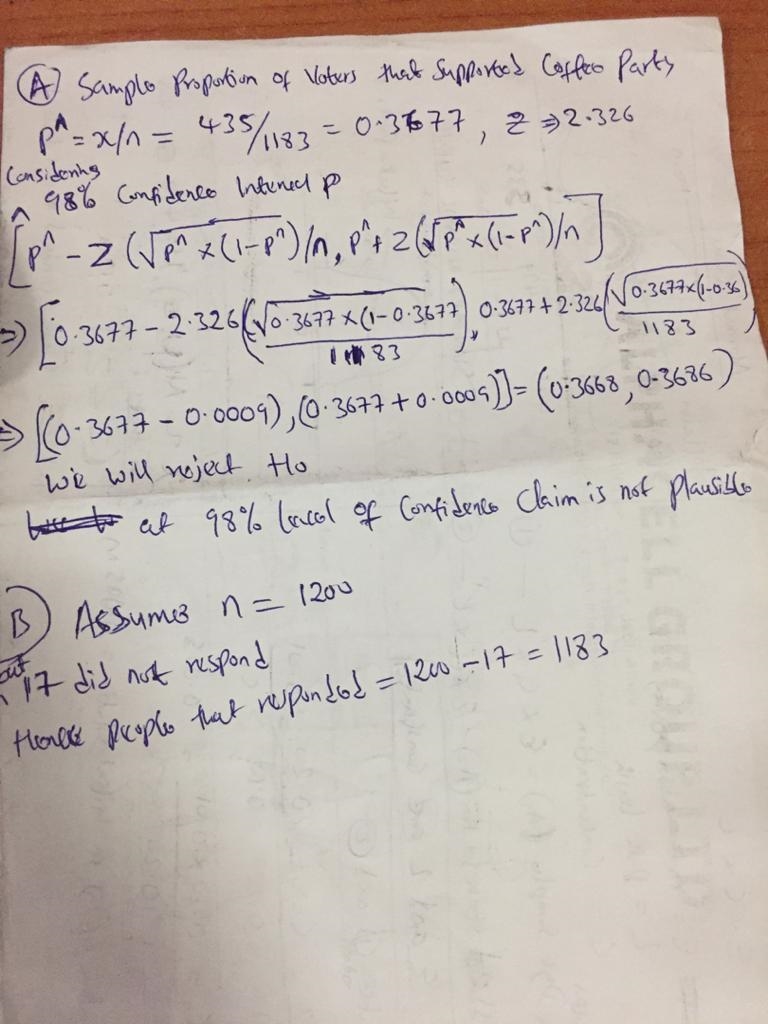 A Sample Proportion of Voters that Supported Coffee Party
p^ = x/n = 435/1183 = 0.3677, z ⇒ 2.326
Considering
^ 98% Confidence Interval p
[p^ - z (√p^ × (1-p^)/n, p^ + z (√p^ × (1-p^)/n]
⇒ [0.3677 - 2.326 (√0.3677 × (1-0.3677 / 1183), 0.3677 + 2.326 (√0.3677 × (1-0.36) / 1183)
⇒ [(0.3677 - 0.0009), (0.3677 + 0.0009)] = (0.3668, 0.3686)
We will reject Ho
at 98% level of Confidence Claim is not plausible
B) Assume n = 1200
but 17 did not respond
Hence people that responded = 1200 - 17 = 1183